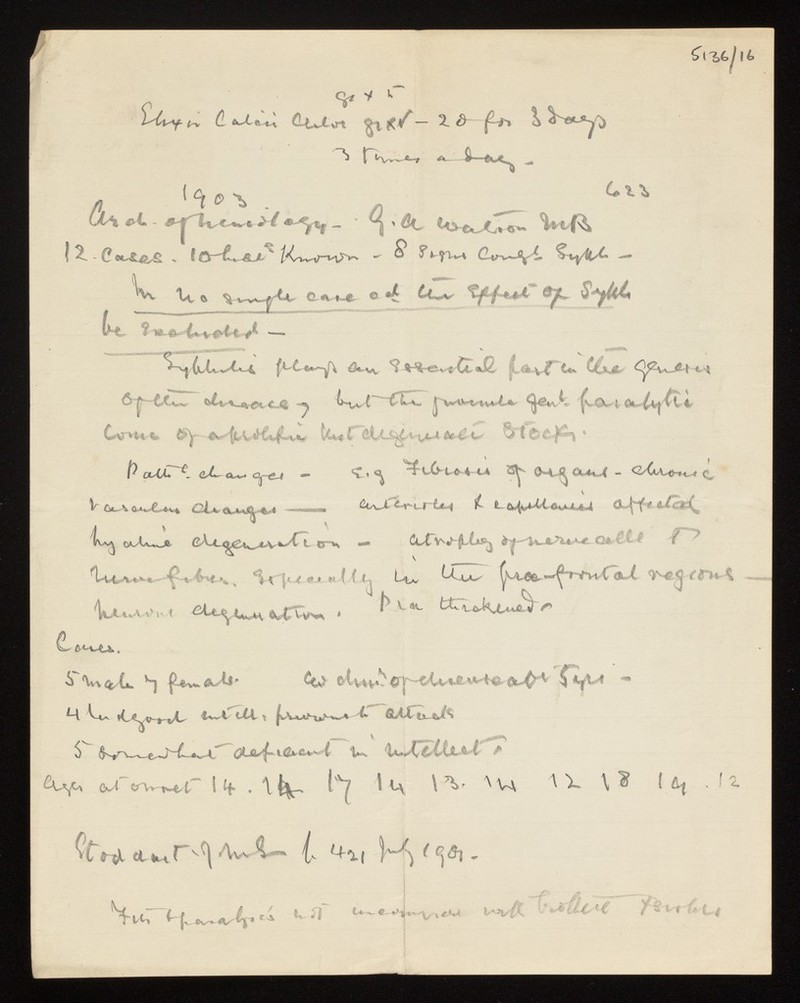 5136/16
gr x 5
Elixir Calcii Chlor – 20 for 3 days
3 times a day –
1903 623
Arch. of neurology – G. A Watson MB
12. cases. 10 Known – 8 signs Congl Syph –
In no single case cd the effect of Syph
be excluded –
Syphilis plays an essential part in the genesis
of the disease, but the juvenile genl paralytic
come of a prolific but degenerate Stock.
Pathc. changes – e.g Fibrosis of organs – chronic
vascular changes — arterioles & capillaries affected
hyaline degeneration – atrophy of nerve cells &
nerve fibres. Especially in the prae-frontal regions –
neurone degeneration. Pia thickened.
Cases.
5 male 7 female. av durn of disease abt 5 yrs –
4 had good intell. previous to attack
5 somewhat deficient in intellect.
Ages at onset 14 . 14 17 14 13. 14 12 18 19 . 12
Stoddart J M S p. 421 July 1901 –
Fits & paralysis not uncommon with